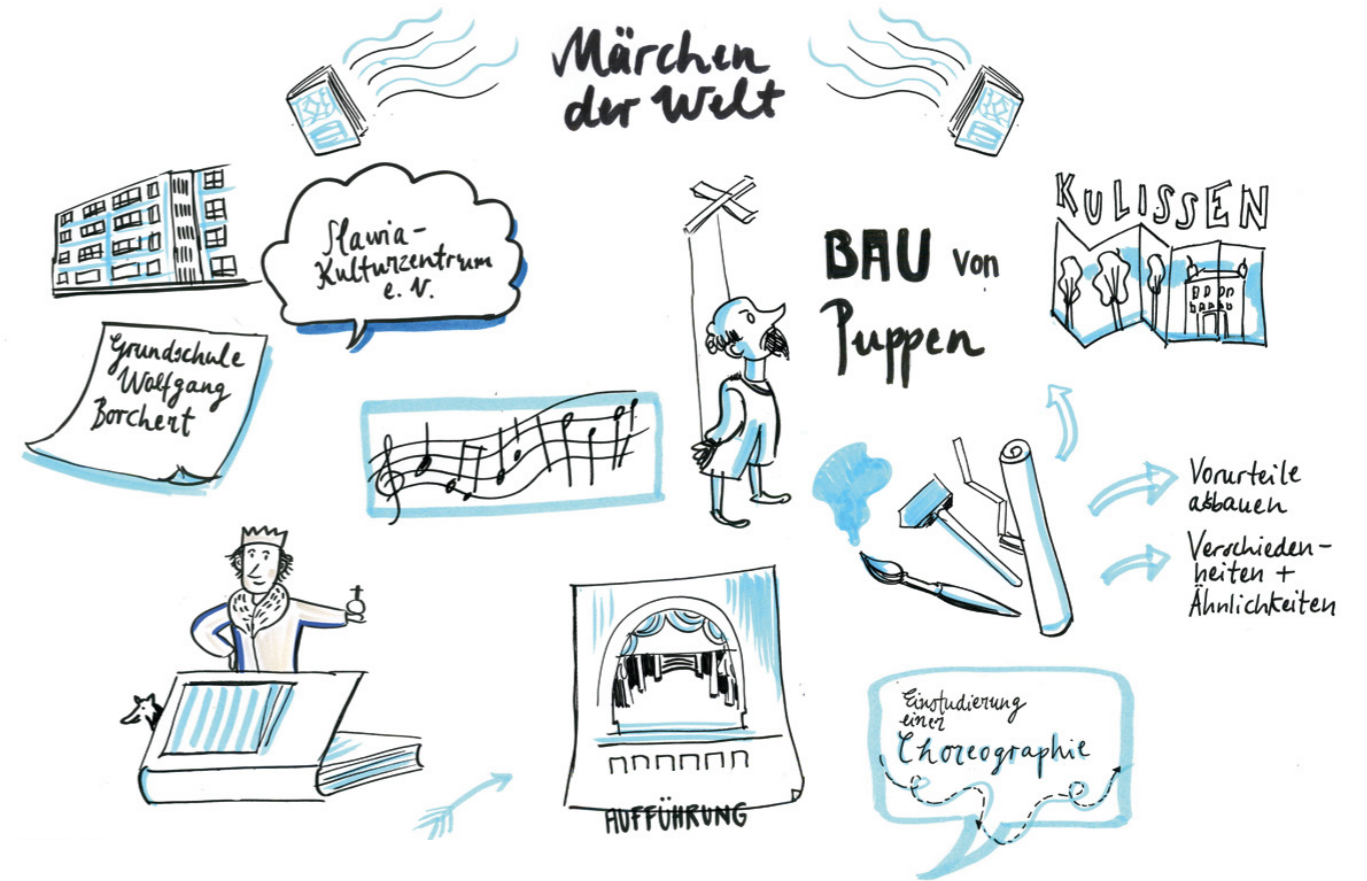 Märchen
der Welt
Slawia-
Kulturzentrum
e. V.
Grundschule
Wolfgang
Borchert
BAU von
Puppen
KULISSEN
Vorurteile
abbauen
Verschieden-
heiten +
Ähnlichkeiten
AUFFÜHRUNG
Einstudierung
einer
Choreographie